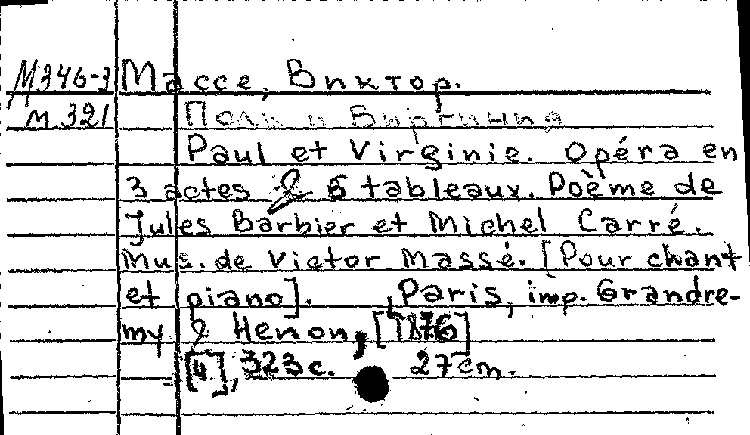 М346-3 Массе, Виктор.
м.321 Поль и Виргиния
Paul et Virginie. Opéra en
3 actes & 6 tableaux. Poème de
Jules Barbier et Michel Carré.
Mus. de Victor Massé. [Pour chant
et piano]. Paris, imp. Grandre-
my & Henon, [1876]
[4], 323 с. 27 cm.